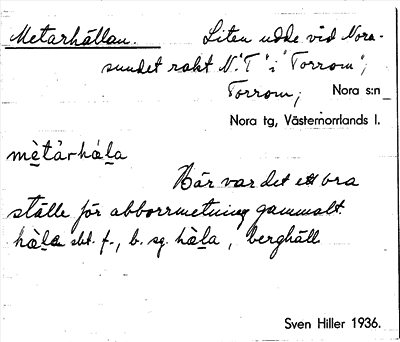 Metarhällan. Liten udde vid Nora-
sundet rakt N. 'T' i 'Torrom';
Torrom; Nora s:n
Nora tg, Västernorrlands l.
mètàrhàla
Här var det ett bra
ställe för abborrmetning gammalt.
hàla sbt. f., b. sg. hàla, berghäll
Sven Hiller 1936.